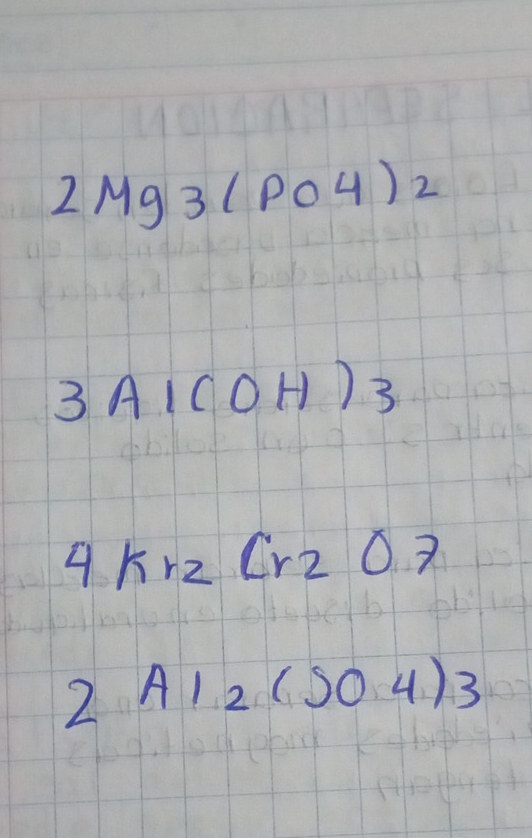 2Mg3(PO4)2
3Al(OH)3
4Kr2 Cr2 O7
2 Al2(SO4)3